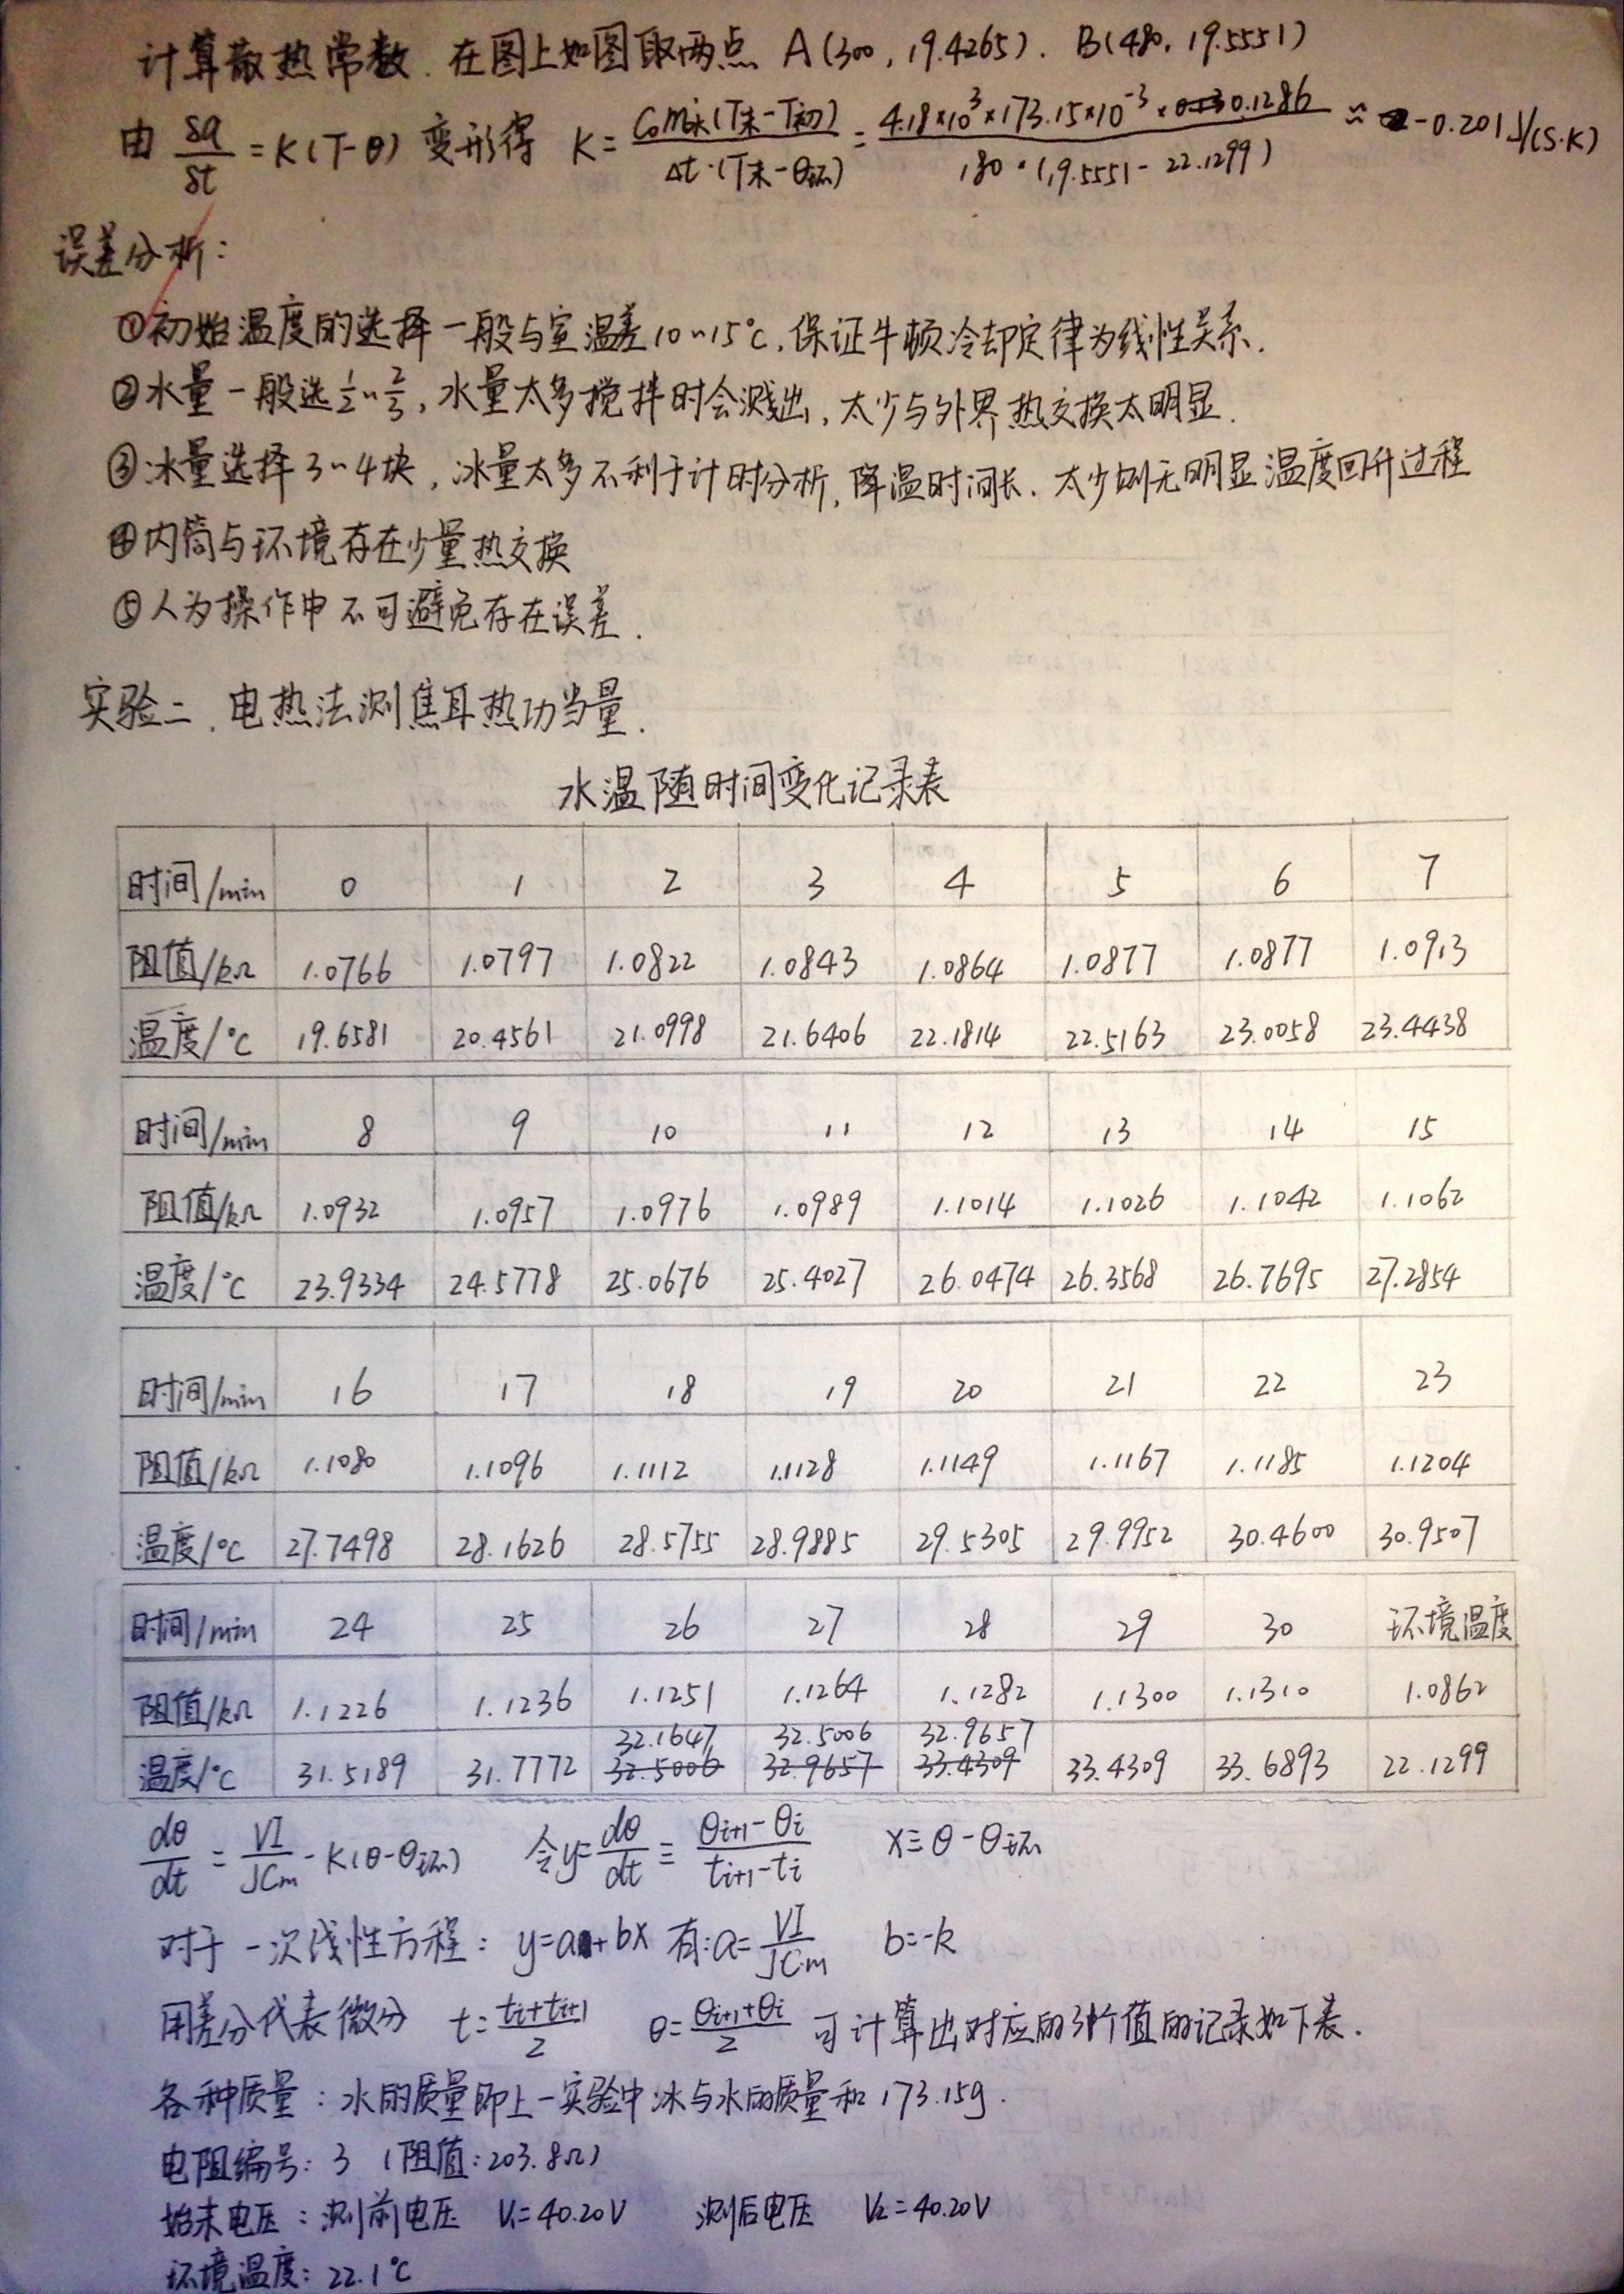 计算散热常数.在图上如图取两点 A(300, 19.4265). B(480, 19.5551)
由 δq/δt = K(T-θ) 变形得 K = C₀m水(T末-T初)/Δt·(T末-θ环) = 4.18×10³×173.15×10⁻³×0.1286/180·(19.5551-22.1299) ≈ -0.201 J/(S·K)
误差分析:
①初始温度的选择一般与室温差10~15℃,保证牛顿冷却定律为线性关系.
②水量一般选1/2~2/3,水量太多搅拌时会溅出,太少与外界热交换太明显.
③冰量选择3~4块,冰量太多不利于计时分析,降温时间长.太少则无明显温度回升过程
④内筒与环境存在少量热交换
⑤人为操作中不可避免存在误差.
实验二.电热法测焦耳热功当量.
水温随时间变化记录表
时间/min 0 1 2 3 4 5 6 7
阻值/kΩ 1.0766 1.0797 1.0822 1.0843 1.0864 1.0877 1.0877 1.0913
温度/℃ 19.6581 20.4561 21.0998 21.6406 22.1814 22.5163 23.0058 23.4438
时间/min 8 9 10 11 12 13 14 15
阻值/kΩ 1.0932 1.0957 1.0976 1.0989 1.1014 1.1026 1.1042 1.1062
温度/℃ 23.9334 24.5778 25.0676 25.4027 26.0474 26.3568 26.7695 27.2854
时间/min 16 17 18 19 20 21 22 23
阻值/kΩ 1.1080 1.1096 1.1112 1.1128 1.1149 1.1167 1.1185 1.1204
温度/℃ 27.7498 28.1626 28.5755 28.9885 29.5305 29.9952 30.4600 30.9507
时间/min 24 25 26 27 28 29 30 环境温度
阻值/kΩ 1.1226 1.1236 1.1251 1.1264 1.1282 1.1300 1.1310 1.0862
32.1647 32.5006 32.9657
温度/℃ 31.5189 31.7772 32.5006 32.9657 33.4309 33.4309 33.6893 22.1299
dθ/dt = VI/JCm - K(θ-θ环) 令y=dθ/dt = θi+1-θi/ti+1-ti x=θ-θ环
对于一次线性方程: y=a+bx 有:a=VI/JCm b=-k
用差分代表微分 t=ti+ti+1/2 θ=θi+1+θi/2 可计算出对应的31个值的记录如下表.
各种质量:水的质量即上一实验中冰与水的质量和173.15g.
电阻编号: 3 (阻值:203.8Ω)
始末电压:测前电压 V₁=40.20V 测后电压 V₂=40.20V
环境温度: 22.1℃